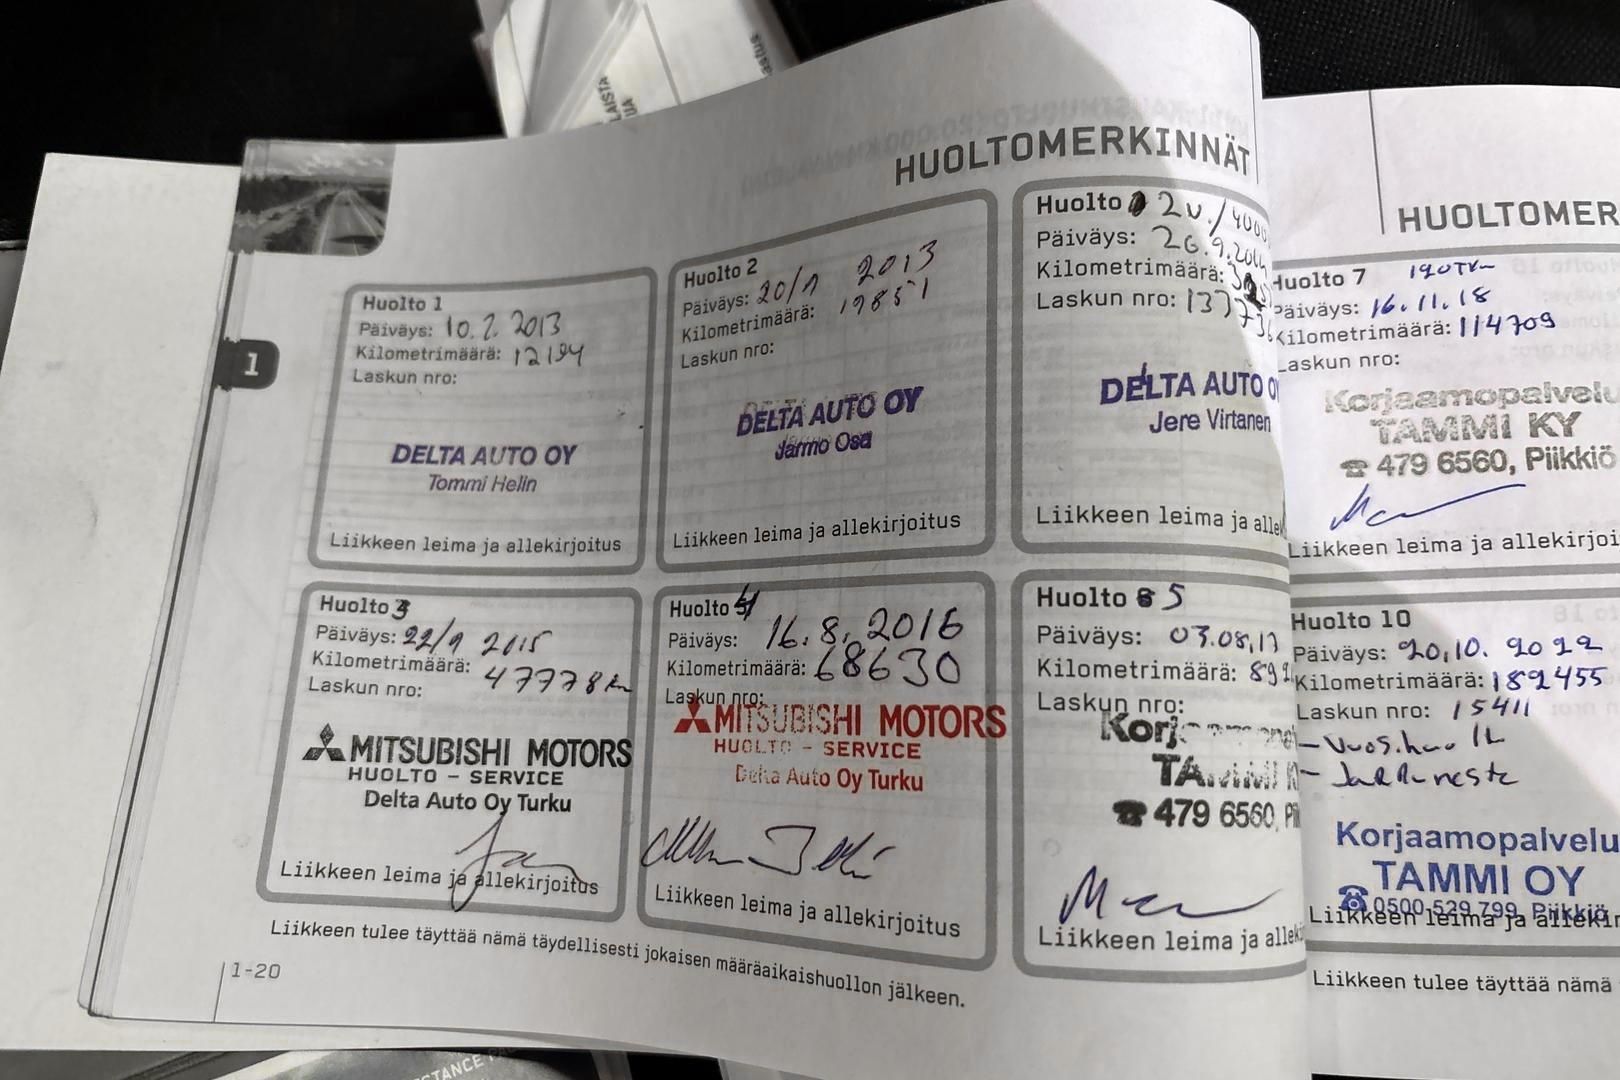 HUOLTOMERKINNÄT
1
Huolto 1
Päiväys: 10.2.2013
Kilometrimäärä: 12194
Laskun nro:
DELTA AUTO OY
Tommi Helin
Liikkeen leima ja allekirjoitus
Huolto 2
Päiväys: 20/9 2013
Kilometrimäärä: 19851
Laskun nro:
DELTA AUTO OY
Jarmo Osa
Liikkeen leima ja allekirjoitus
Huolto 2v./4000
Päiväys: 26.9.2014
Kilometrimäärä:
Laskun nro: 137736
DELTA AUTO O
Jere Virtanen
Liikkeen leima ja alle
Huolto 3
Päiväys: 22/9 2015
Kilometrimäärä: 47778 km
Laskun nro:
MITSUBISHI MOTORS
HUOLTO - SERVICE
Delta Auto Oy Turku
Liikkeen leima ja allekirjoitus
Huolto 4
Päiväys: 16.8.2016
Kilometrimäärä: 68630
Laskun nro:
MITSUBISHI MOTORS
HUOLTO - SERVICE
Delta Auto Oy Turku
Liikkeen leima ja allekirjoitus
Huolto 6 5
Päiväys: 03.08.17
Kilometrimäärä: 892
Laskun nro:
TAMMI K
479 6560, Pii
Liikkeen leima ja alleki
Liikkeen tulee täyttää nämä täydellisesti jokaisen määräaikaishuollon jälkeen.
1-20
HUOLTOMER
Huolto 7 120Tkm
Päiväys: 16.11.18
Kilometrimäärä: 114709
Laskun nro:
Korjaamopalvelu
TAMMI KY
479 6560, Piikkiö
Liikkeen leima ja allekirjoi
Huolto 10
Päiväys: 20.10.2022
Kilometrimäärä: 182455
Laskun nro: 15411
- Vuos.huolto
- JaRRuneste
Korjaamopalvelu
TAMMI OY
0500-529 799, Piikkiö
Liikkeen leima ja allekir
Liikkeen tulee täyttää nämä